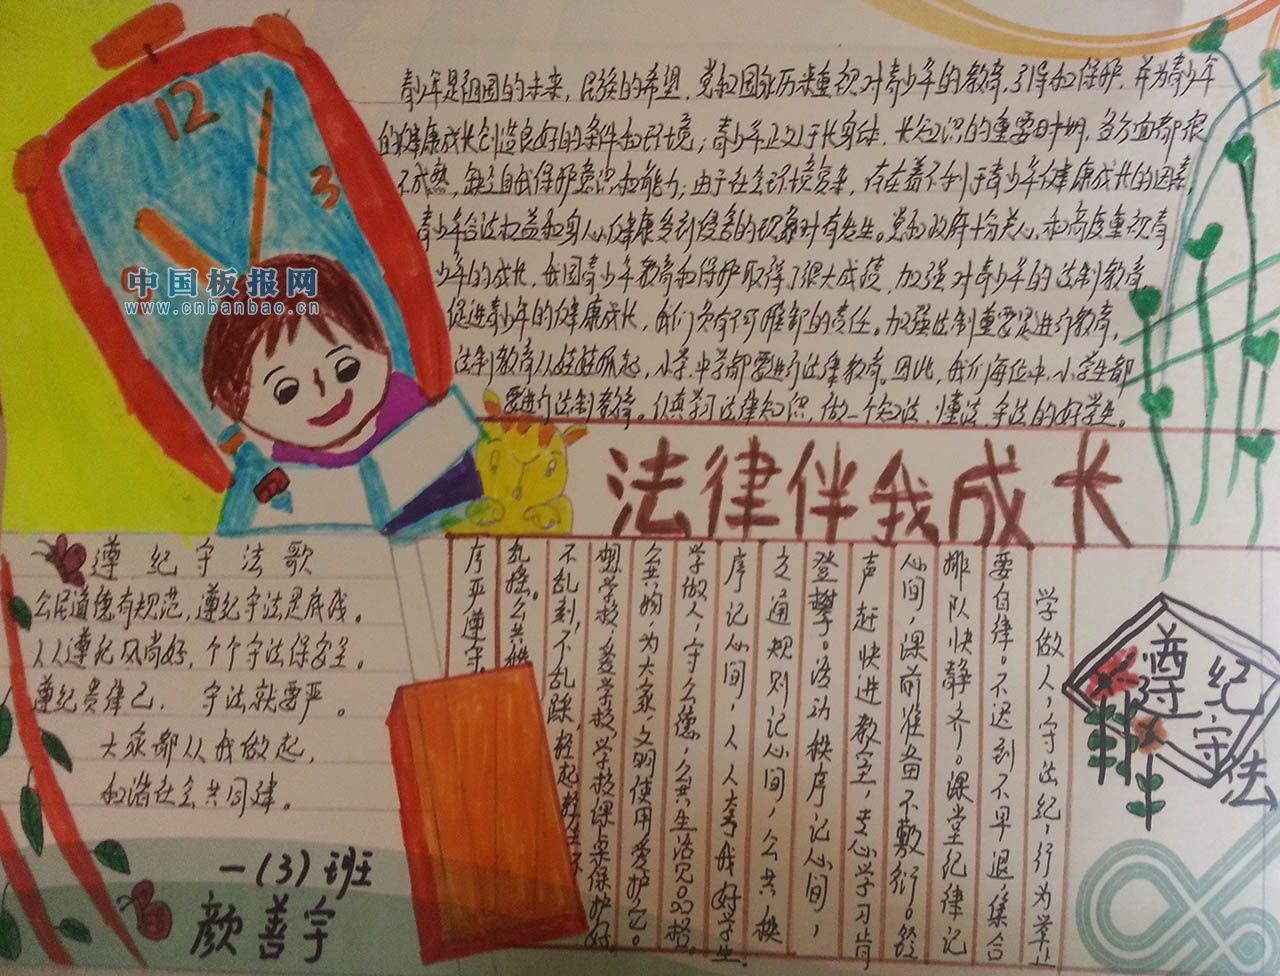 12
3
中国板报网
www.cnbanbao.cn
青少年是祖国的未来，民族的希望，党和国家历来重视对青少年的教育，引导和保护，并为青少年
的健康成长创造良好的条件和环境；青少年正处于长身体、长知识的重要时期，各方面都很
不成熟，缺乏自我保护意识和能力；由于社会环境复杂，存在着不利于青少年健康成长的因素，
青少年合法权益和身心健康受到侵害的现象时有发生。党和政府十分关心和高度重视青
少年的成长，我国青少年教育和保护取得了很大成绩，加强对青少年的法制教育，
促进青少年的健康成长，我们负有不可推卸的责任。加强法制重要是进行教育，
法制教育从娃娃抓起，小学、中学都要进行法律教育。因此，我们每位中、小学生都
要进行法制教育。认真学习法律知识，做一个知法、懂法、守法的好学生。
法律伴我成长
遵纪守法歌
公民道德有规范，遵纪守法是底线。
人人遵纪风尚好，个个守法保安全。
遵纪贵律己，守法就要严。
大家都从我做起，
和谐社会共同建。
一(3)班
颜善宇
学做人，守法纪，行为举止
要自律。不迟到不早退，集合
排队快静齐。课堂纪律记
心间，课前准备不敷衍。铃
声赶快进教室，专心学习肯
登攀。活动秩序记心间，
交通规则记心间，公共秩
序记心间，人人夸我好学生。
学做人，守公德，公共生活见品格。
公共物，为大家，文明使用爱护它。
想学校，爱学校，学校课桌保护好
不乱刻，不乱踩，轻起轻坐不
乱摇。公共秩
序严遵守
遵纪守法